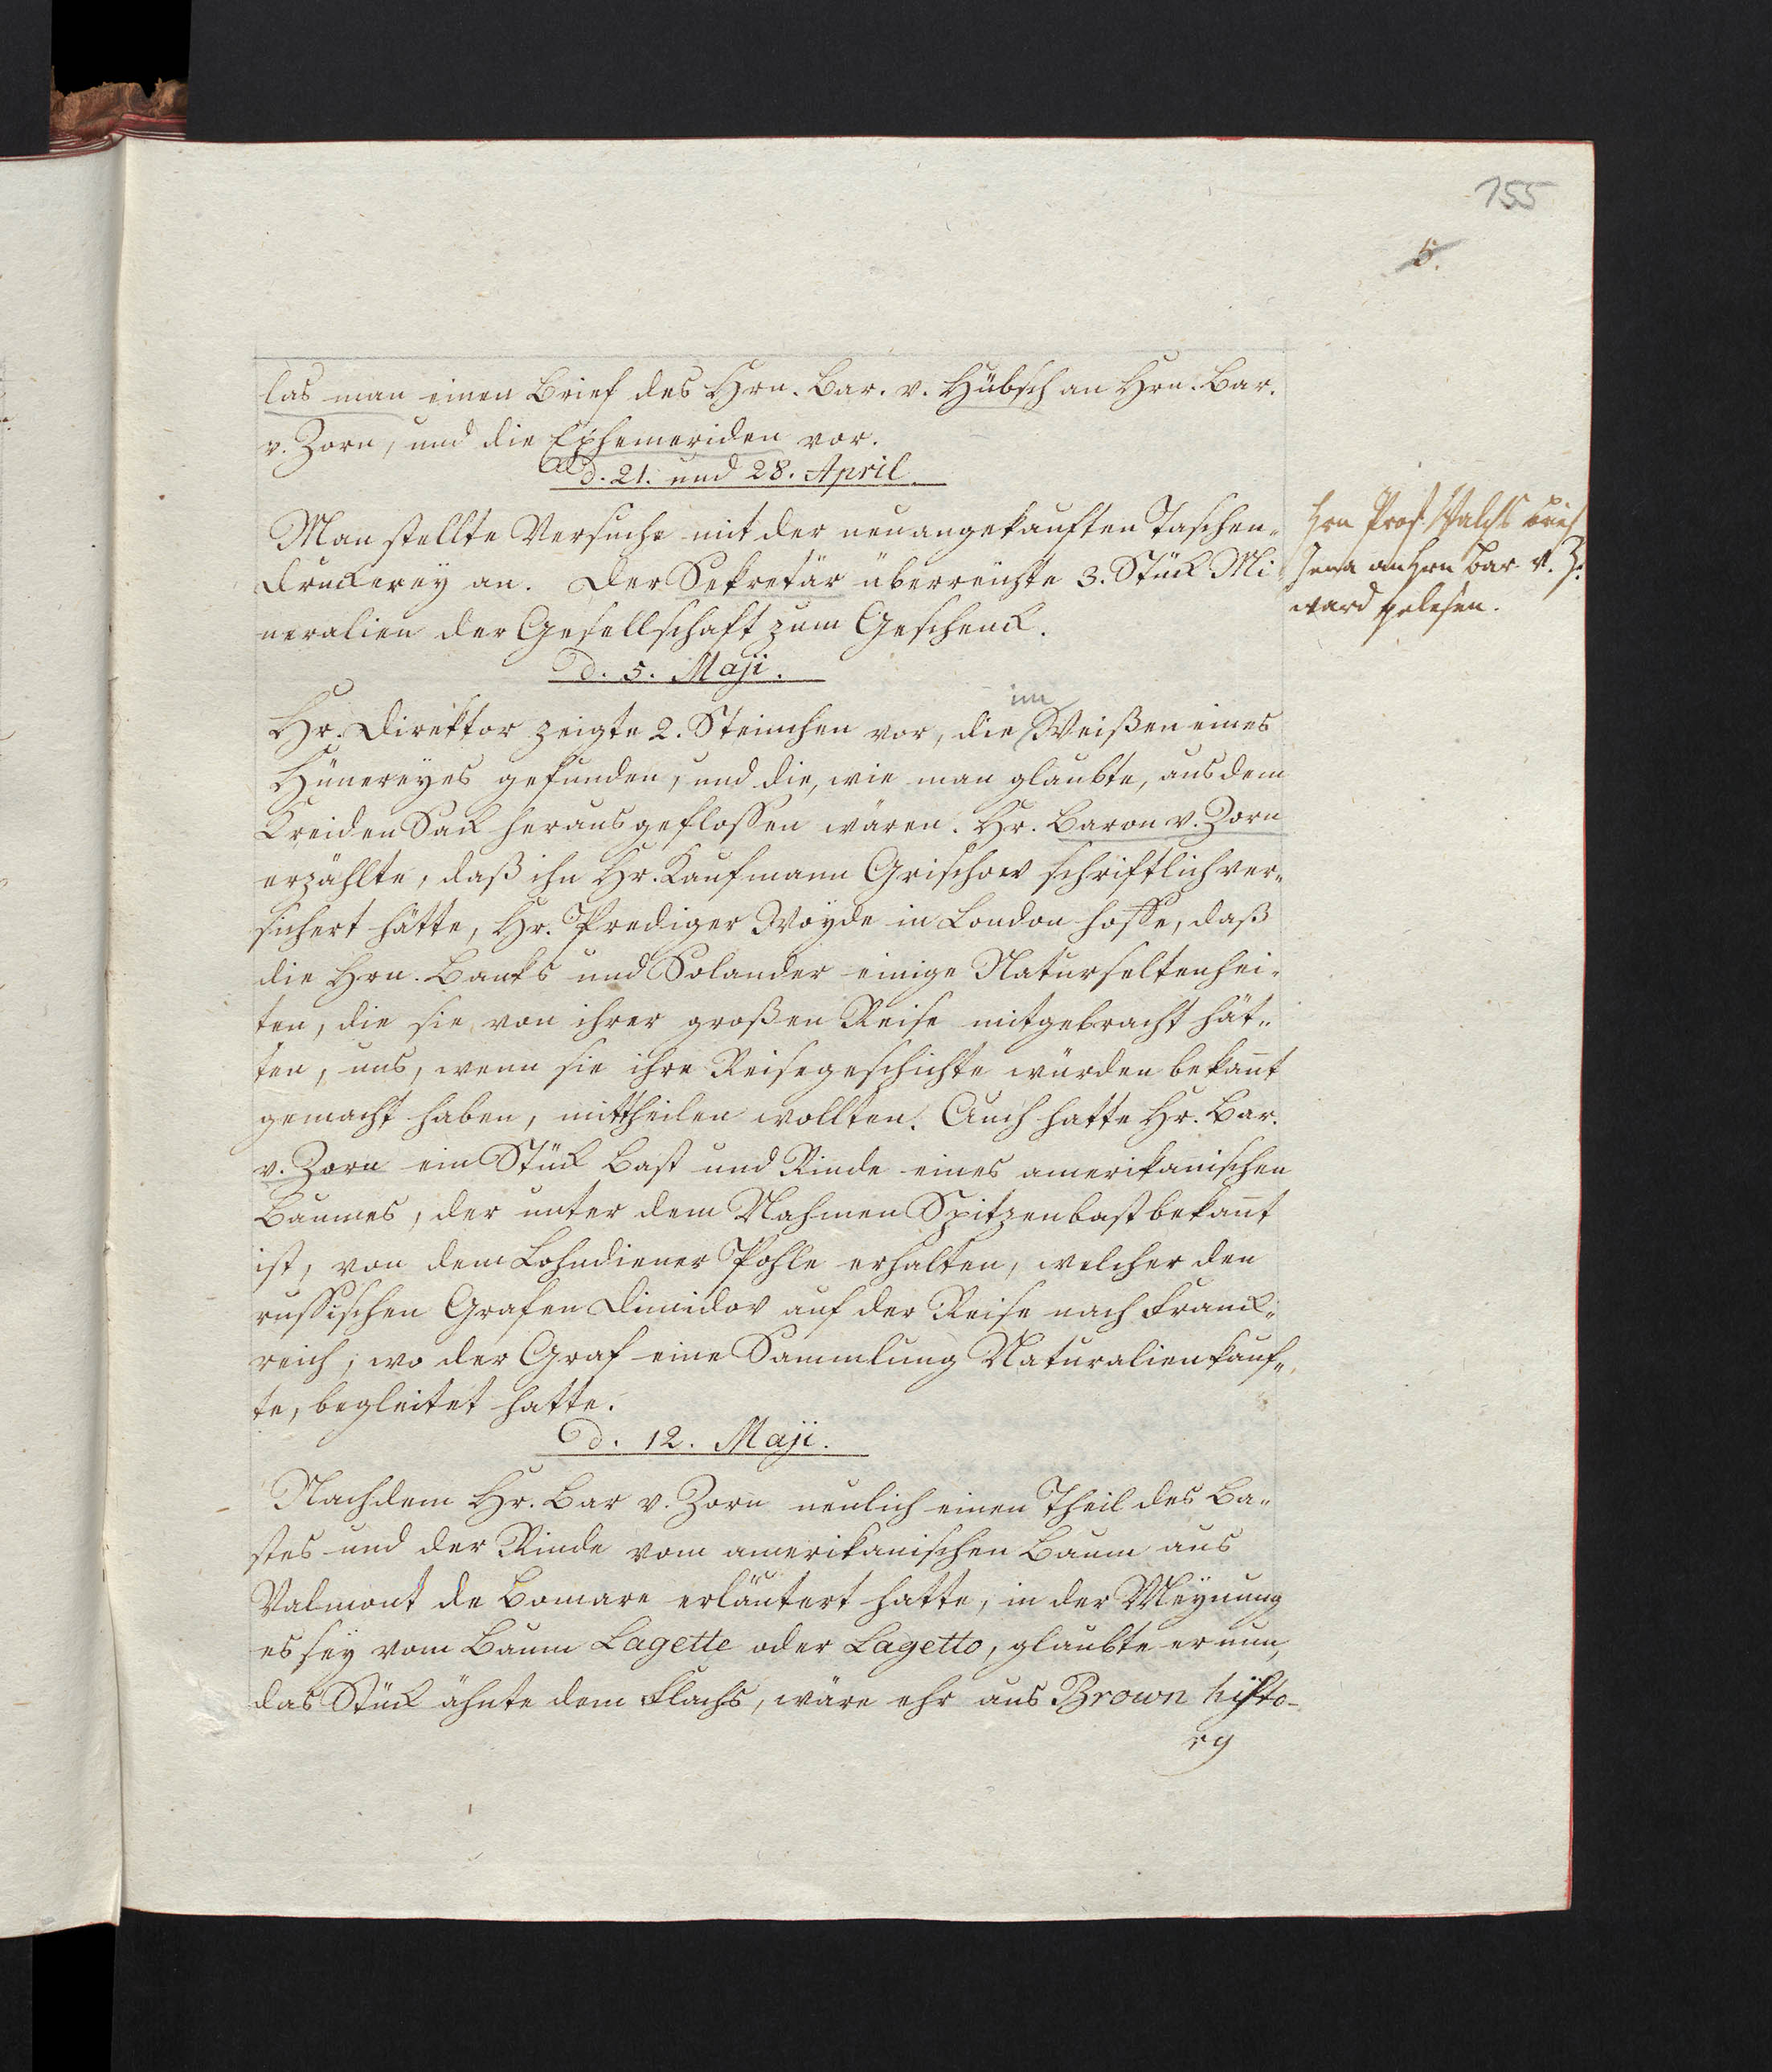 155
5.
las man einen Brief des Hrn. Bar. v. Hübsch an Hrn. Bar.
v. Zorn, und die Ephemeriden vor.
d. 21. und 28. April
Man stellte Versuche mit der neuangekauften Taschen-
druckerey an. Der Sekretär überreichte 3. Stück Mi-
neralien der Gesellschaft zum Geschenck.
Hrn Prof. Walchs brief
Jena an Hrn Bar v. Z.
ward gelesen.
d. 5. Maji.
Hr. Direktor zeigte 2. Steinchen vor, die im Weißen eines
Hünereyes gefunden, und die, wie man glaubte, aus dem
Kreiden Sack heraus geflossen wären. Hr. Baron v. Zorn
erzählte, daß ihn Hr. Kaufmann Grischow schriftlich ver-
sichert hätte, Hr. Prediger Woyde in London hoffe, daß
die Hrn. Banks und Solander einige Naturseltenhei-
ten, die sie von ihrer großen Reise mitgebracht hät-
ten, uns, wenn sie ihre Reisegeschichte würden bekan̄t
gemacht haben, mittheilen wollten. Auch hatte Hr. Bar.
v. Zorn ein Stück Bast und Rinde eines amerikanischen
Baumes, der unter dem Nahmen Spitzenbast bekan̄t
ist, von dem Lohndiener Pohle erhalten, welcher den
russischen Grafen Dimidov auf der Reise nach Franck-
reich, wo der Graf eine Sammlung Naturalien kauf-
te, begleitet hatte.
d. 12. Maji.
Nachdem Hr. Bar v. Zorn neulich einen Theil des Ba-
stes und der Rinde vom amerikanischen Baum aus
Valmont de Bomare erläutert hatte, in der Meynung
es sey vom Baum Lagette oder Lagetto, glaubte er nun,
das Stück ähnte dem Flachs, wäre ehr aus Brown histo-
ry